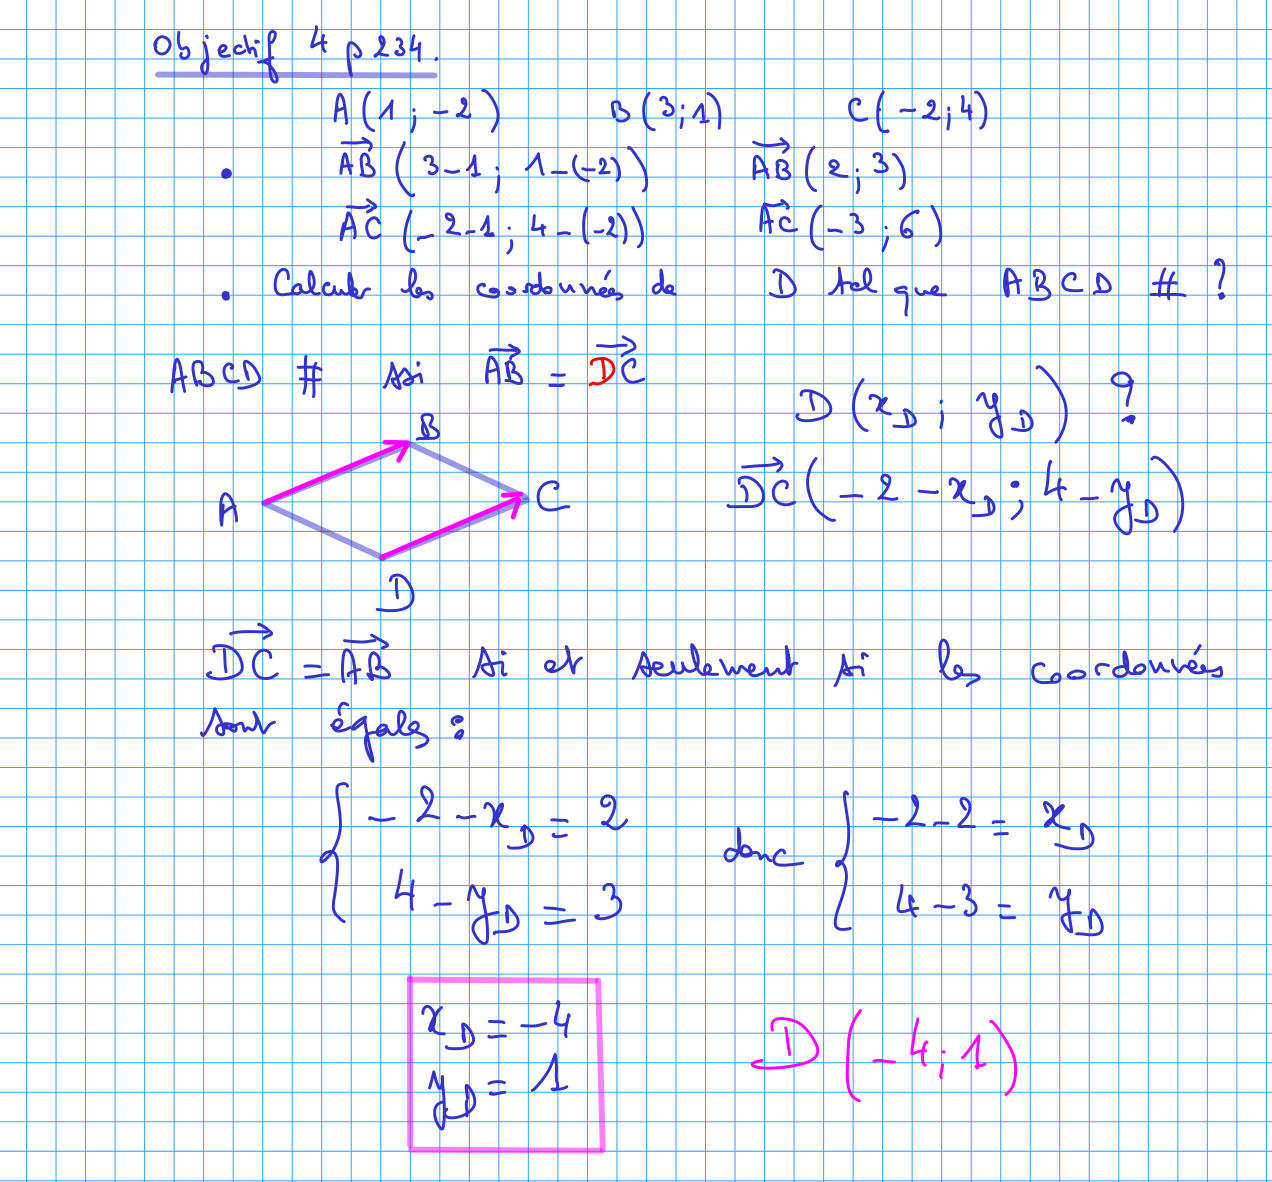 Objectif 4 p 234.
A(1 ; -2) B(3 ; 1) C(-2 ; 4)
• $\overrightarrow{AB}$ (3-1 ; 1-(-2)) $\overrightarrow{AB}$ (2 ; 3)
$\overrightarrow{AC}$ (-2-1 ; 4-(-2)) $\overrightarrow{AC}$ (-3 ; 6)
• Calculer les coordonnées de D tel que ABCD # ?
ABCD # ssi $\overrightarrow{AB}$ = $\overrightarrow{DC}$
D($x_D$ ; $y_D$) ?
B
$\overrightarrow{DC}$ (-2-$x_D$ ; 4-$y_D$)
A C
D
$\overrightarrow{DC}$ = $\overrightarrow{AB}$ si et seulement si les coordonnées
sont égales :
{ -2-$x_D$ = 2 donc { -2-2 = $x_D$
4-$y_D$ = 3 4-3 = $y_D$
$x_D$ = -4
$y_D$ = 1
D(-4 ; 1)